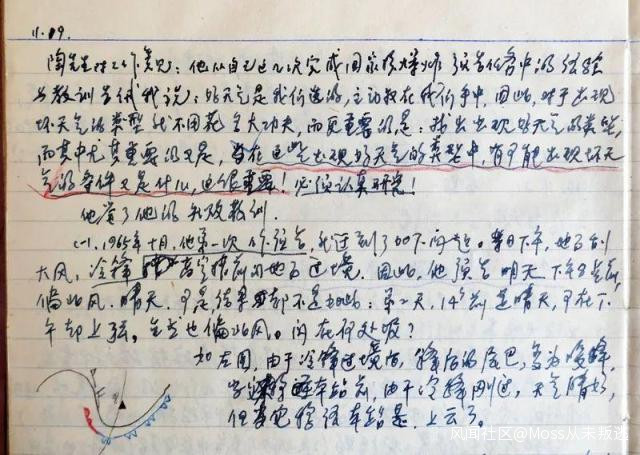 11.09.
陶先生对工作意见：他从自己这几次完成国家核爆炸预告任务中的经验
与教训告诉我说：好天气是我们选的，主动权在我们手中，因此，对于出现
坏天气的类型我不用花多大功夫，而更重要的是：找出出现好天气的类型，
而其中尤其重要的又是，在这些出现好天气的类型中，有可能出现坏天
气的条件又是什么，这很重要！必须认真研究！
他举了他的失败教训．
(一)．1965年十月，他第一次作预告，就遇到了如下问题。某日下午，地面刮
大风，冷锋 高空 前 地面过境，因此，他预告明天下午8点前，
偏北风，晴天，可是结果却不是如此：第二天，14时前是晴天，可在下
午却上云，风也偏北风。问题在何处呢？
如左图，由于冷锋过境后，锋后的尾巴，变为暖锋，
本站前，由于冷锋刚过，天气晴好，
但本站是，上云了。
风闻社区@Moss从未叛逃